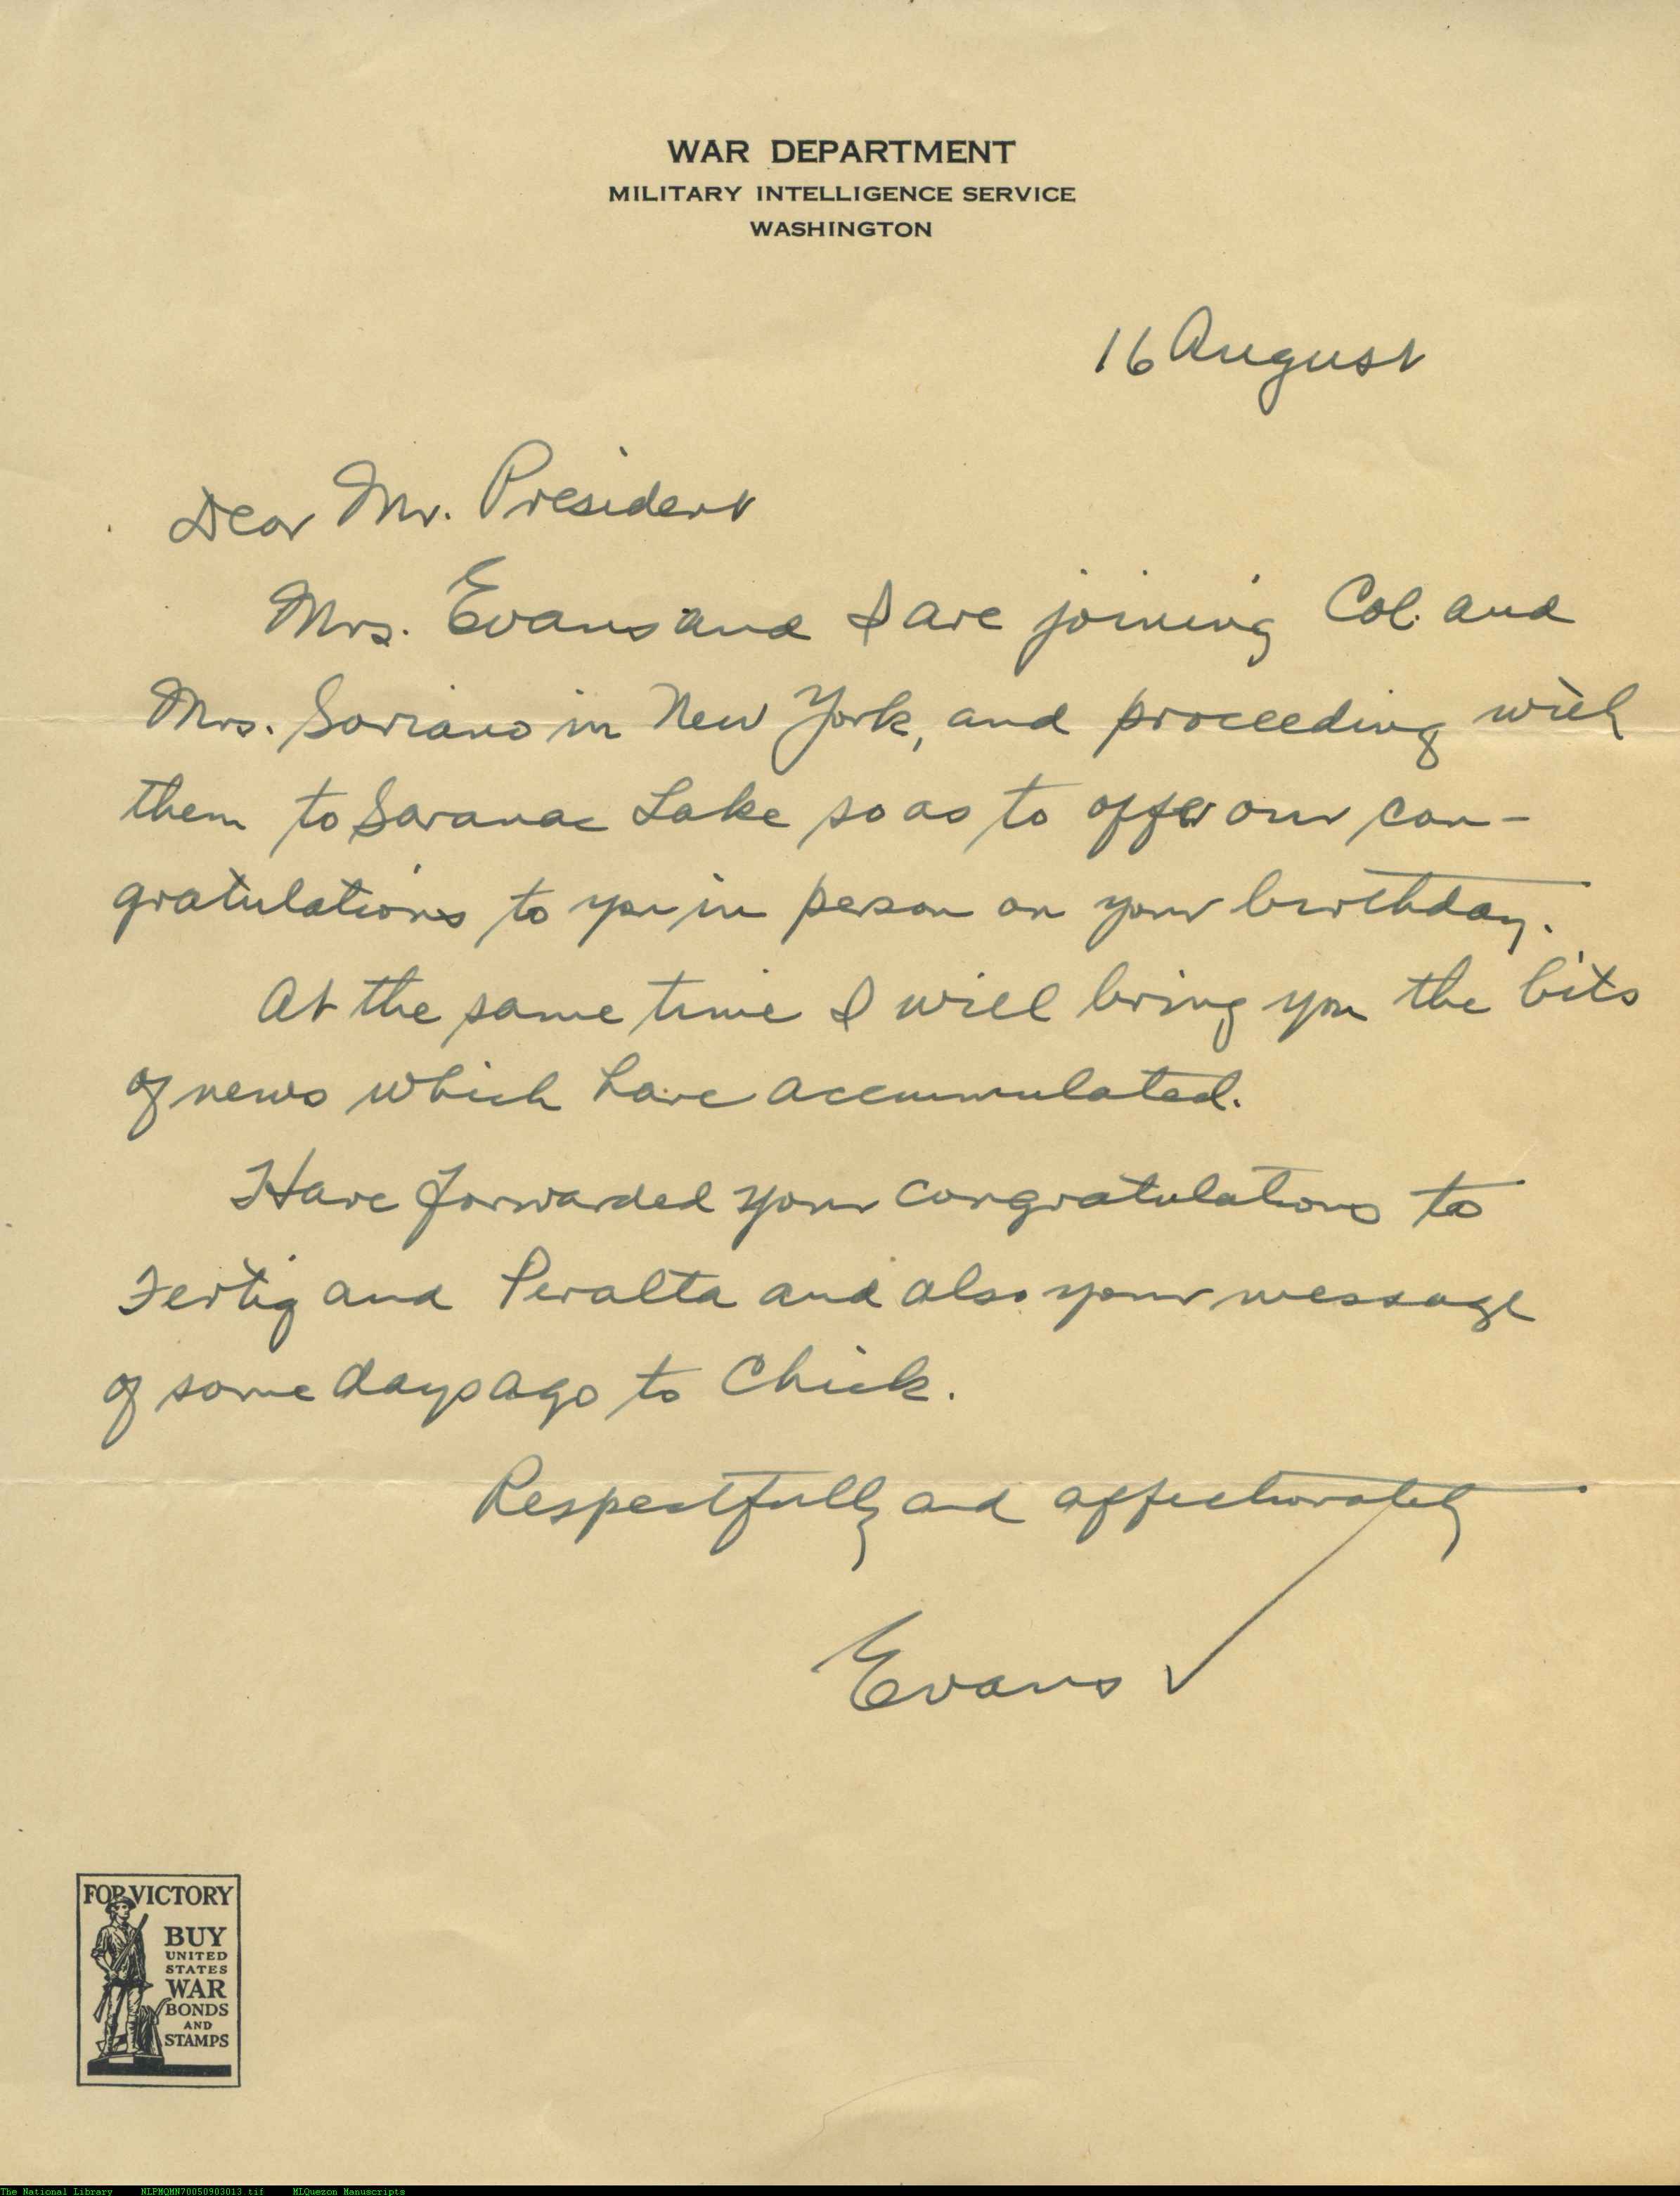 WAR DEPARTMENT
MILITARY INTELLIGENCE SERVICE
WASHINGTON
16 August
Dear Mr. President
Mrs. Evans and I are joining Col. and
Mrs. Soriano in New York, and proceeding with
them to Saranac Lake so as to offer our con-
gratulations to you in person on your birthday.
At the same time I will bring you the bits
of news which have accumulated.
Have forwarded your congratulations to
Fertig and Peralta and also your message
of some days ago to Chick.
Respectfully and affectionately
Evans
FOR VICTORY
BUY
UNITED
STATES
WAR
BONDS
AND
STAMPS
The National Library NLPMQMN70050903013.tif MLQuezon Manuscripts